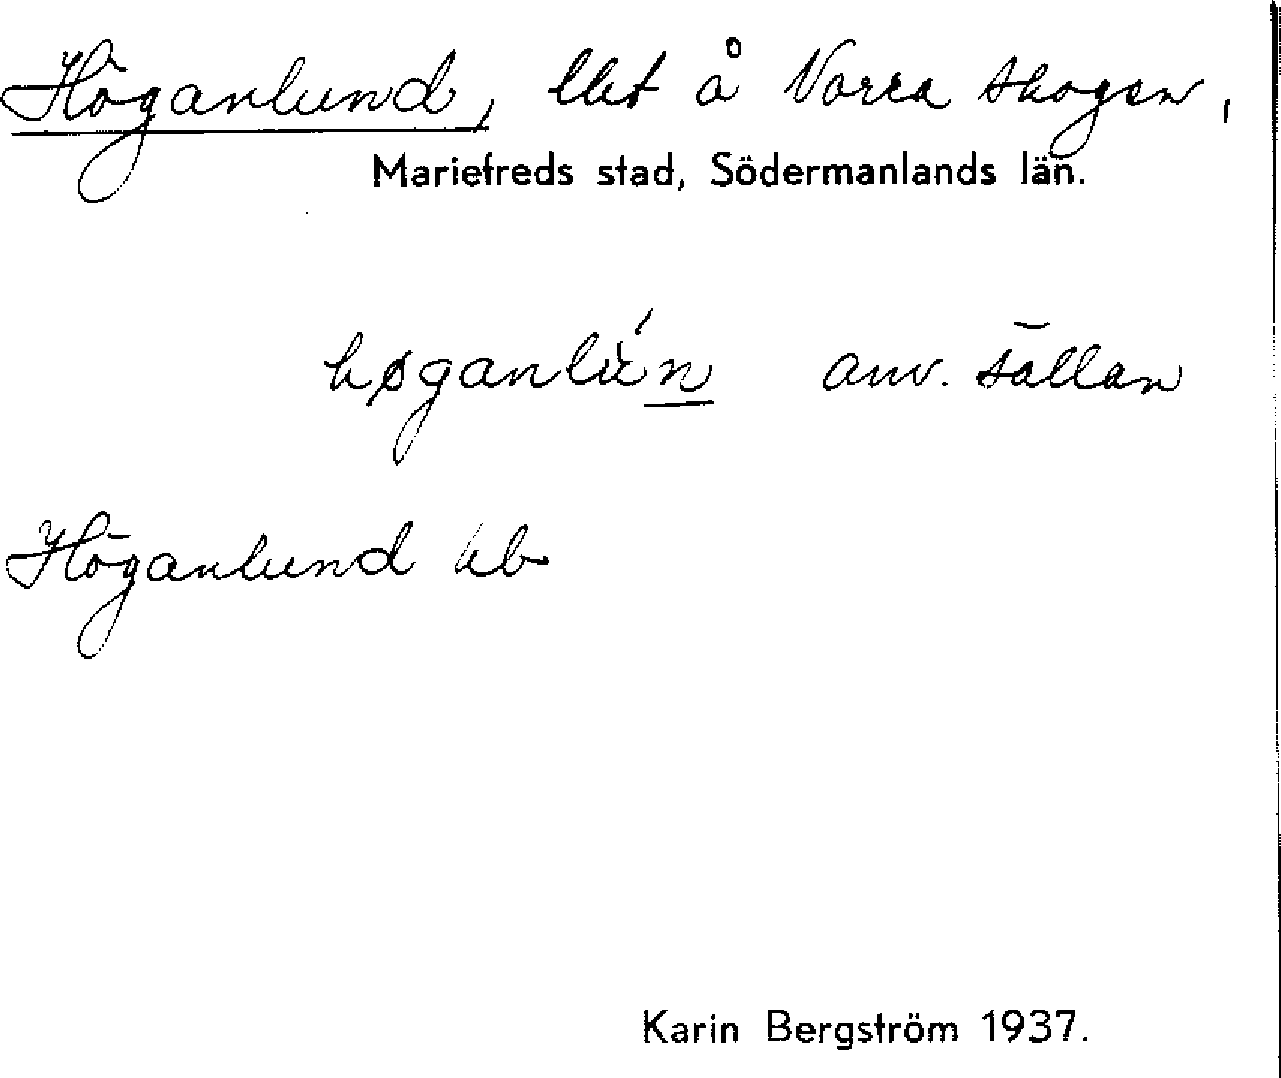 Höganlund, lht å Norra skogen,
Mariefreds stad, Södermanlands län.
anv. sällan
Höganlund hb
Karin Bergström 1937.